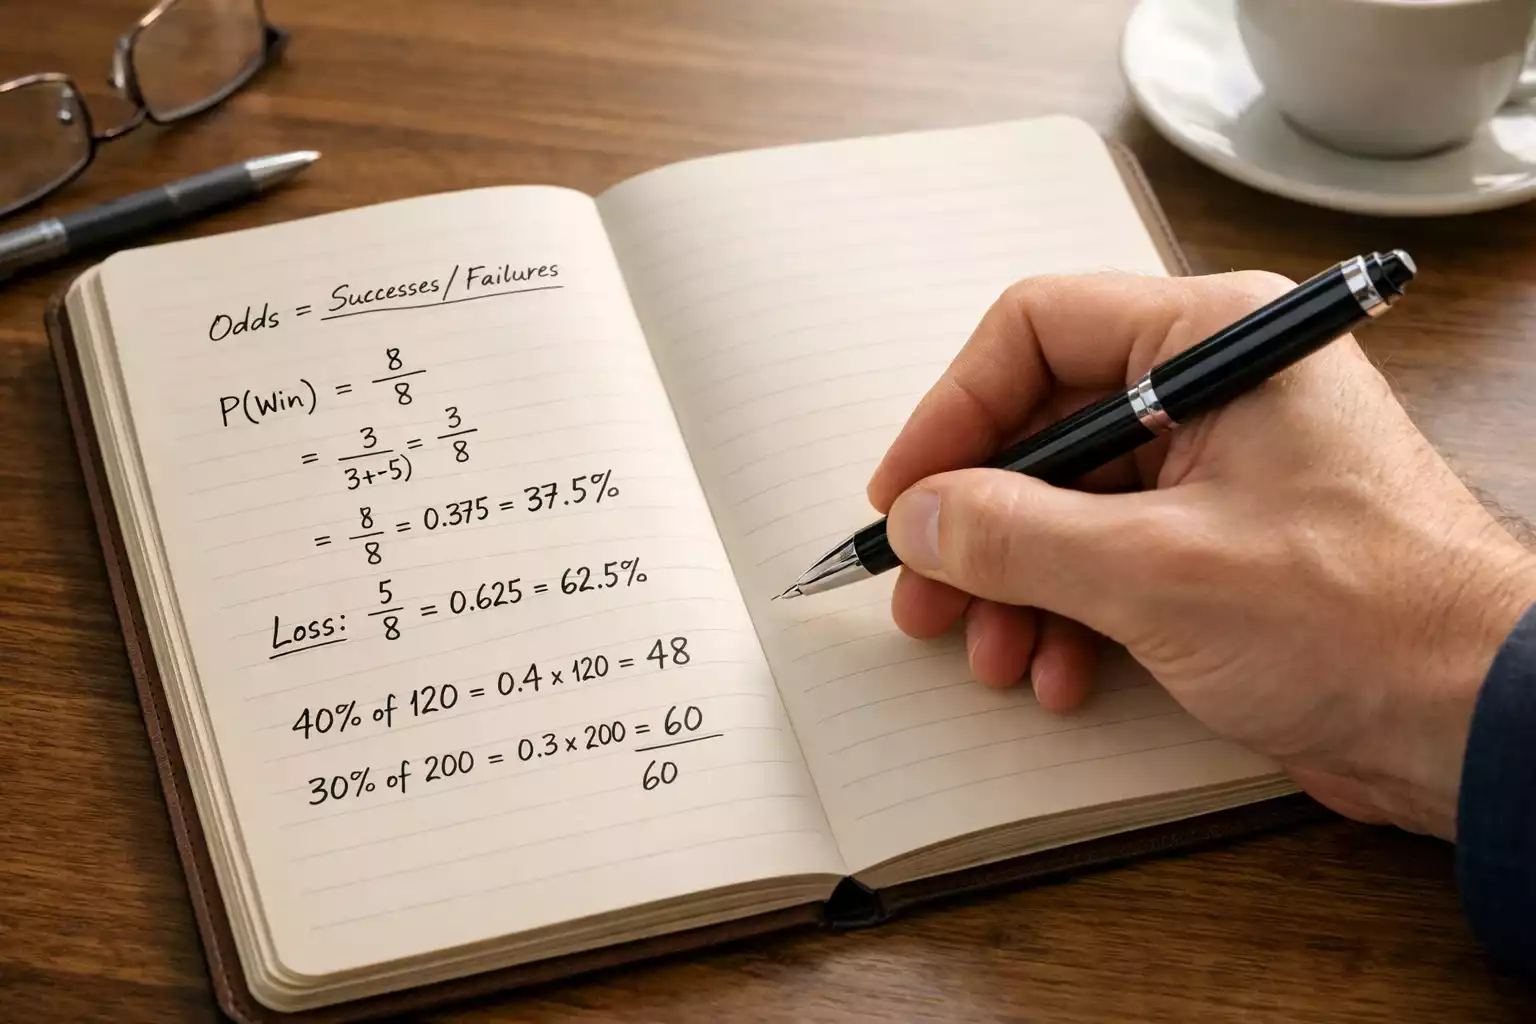 Odds = Successes/Failures
P(Win) = 8/8
= 3/3+-5) = 3/8
= 8/8 = 0.375 = 37.5%
Loss: 5/8 = 0.625 = 62.5%
40% of 120 = 0.4 x 120 = 48
30% of 200 = 0.3 x 200 = 60
60